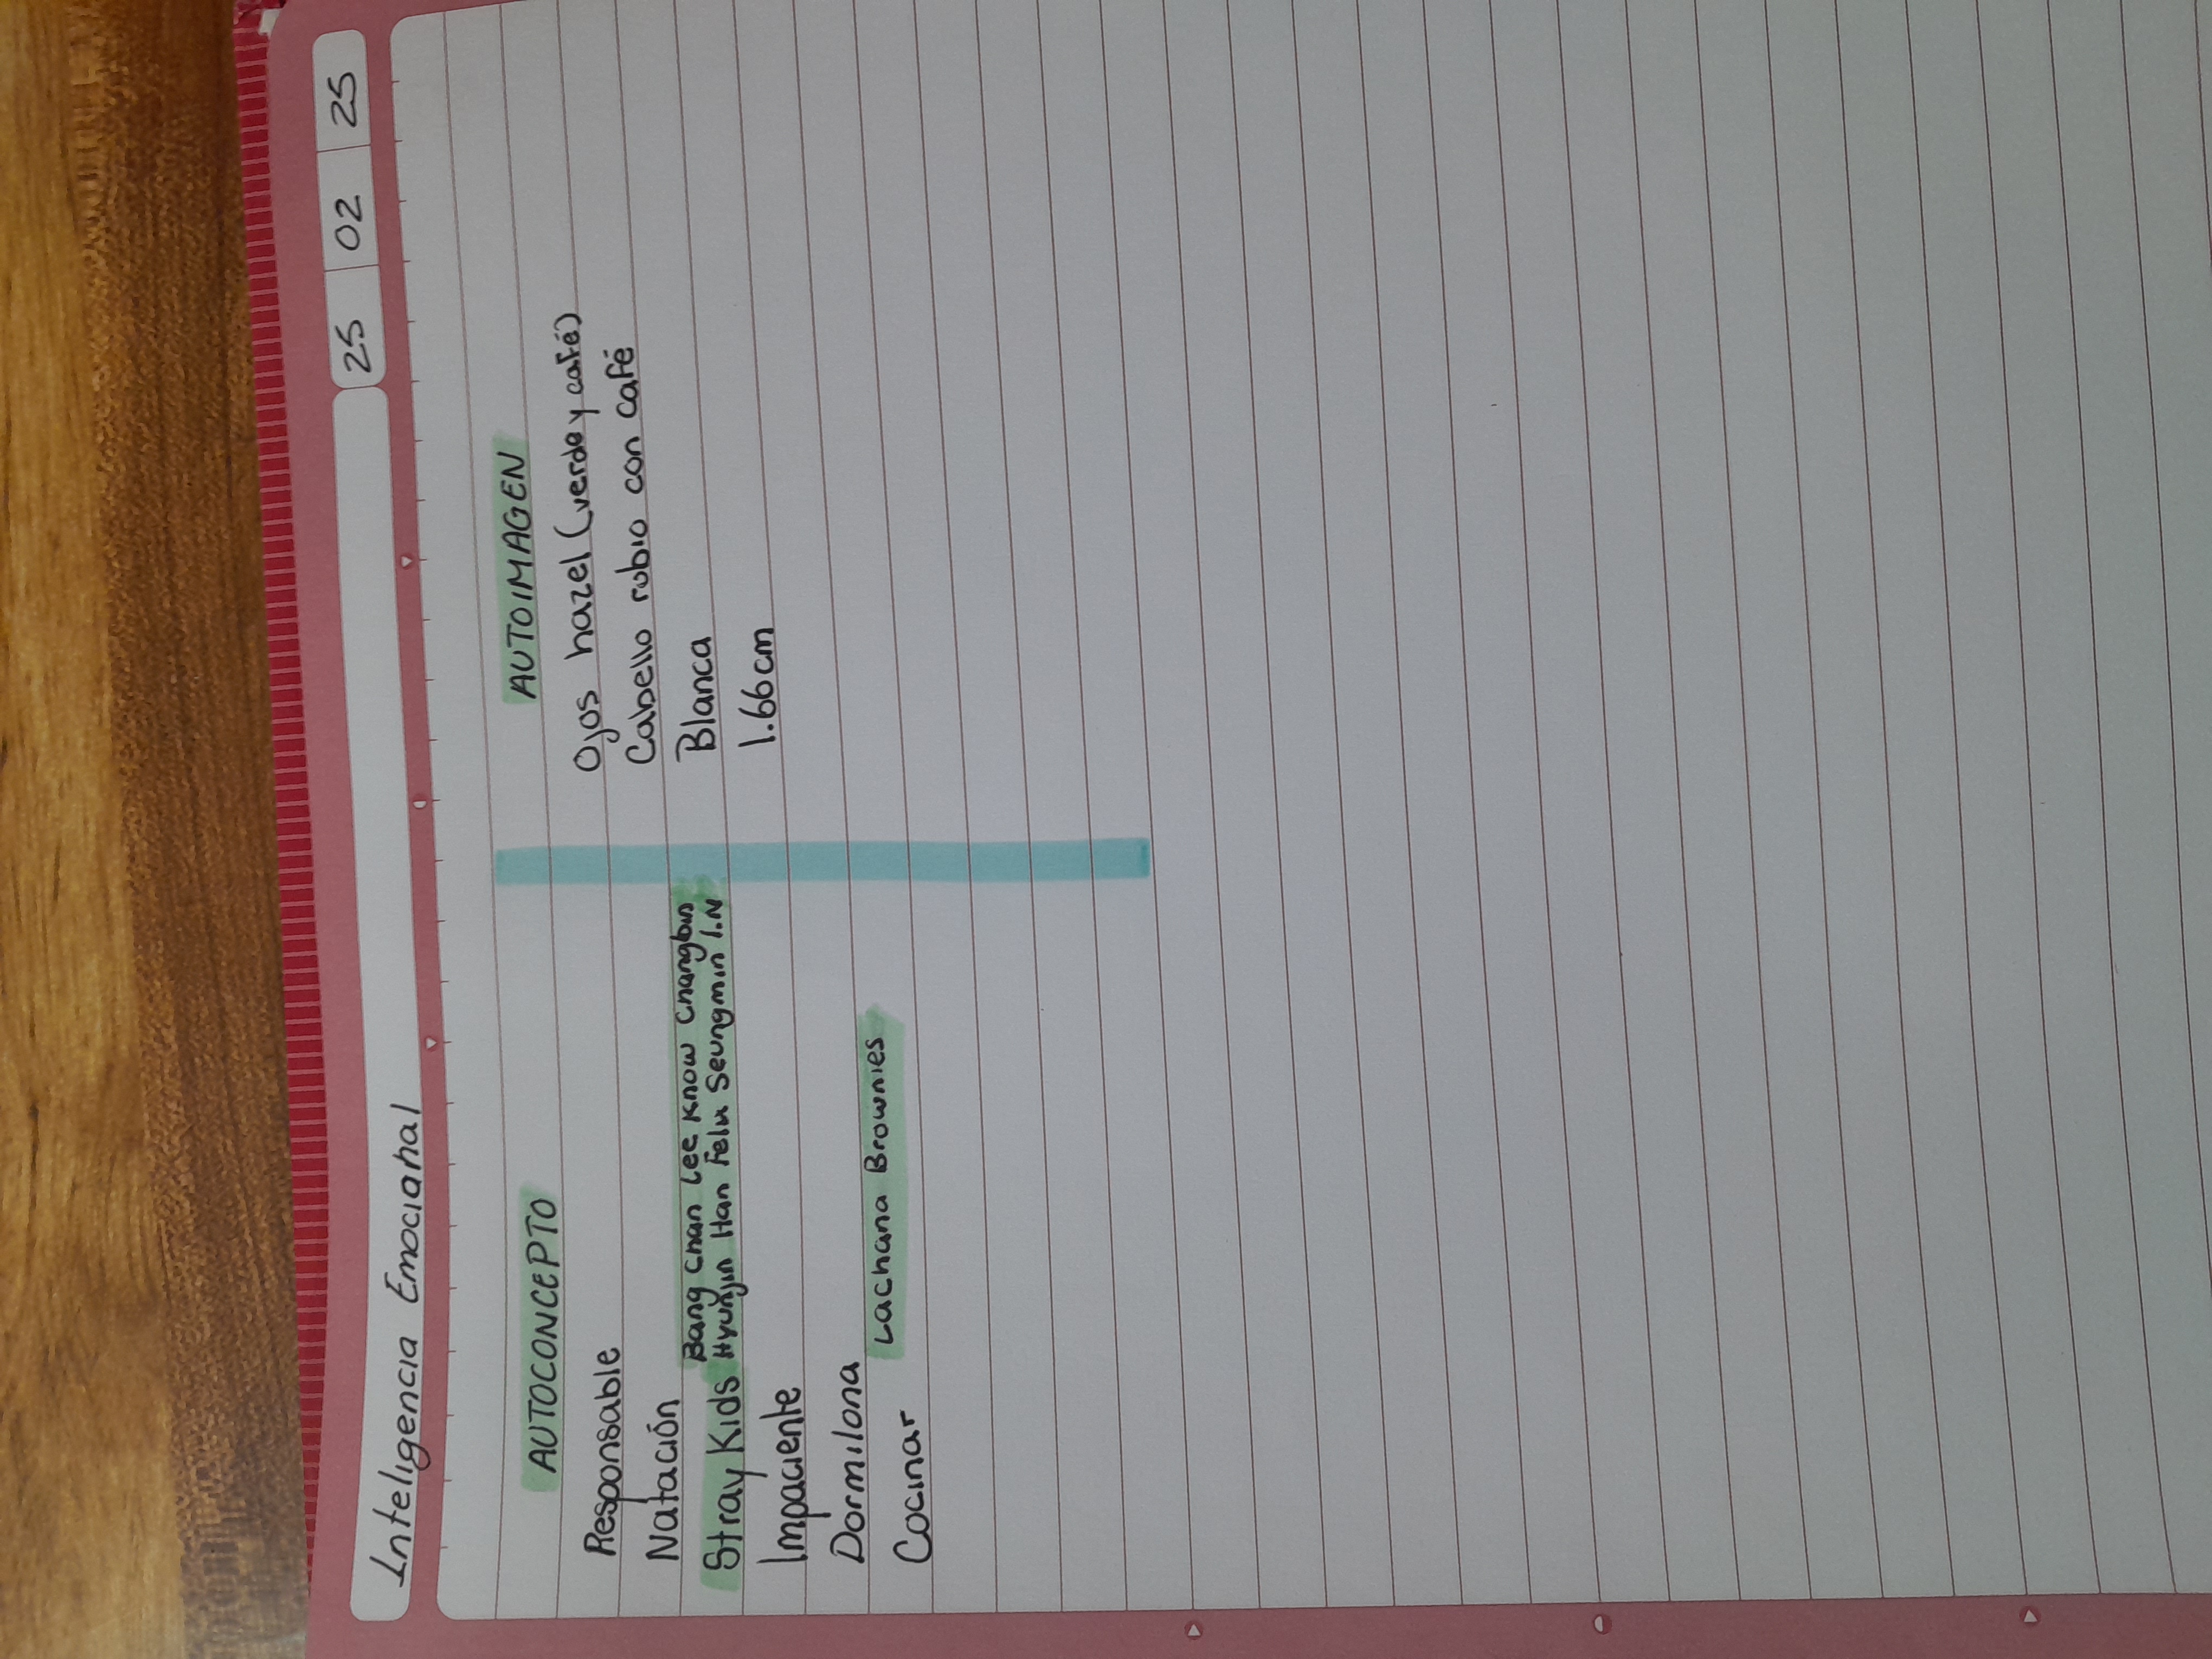 Inteligencia Emocional
25 02 25
AUTOCONCEPTO
Responsable
Natación
Stray Kids Bang Chan Lee Know Changbin
Hyunjin Han Felix Seungmin I.N
Impaciente
Dormilona
Cocinar Lachana Brownies
AUTOIMAGEN
Ojos hazel (verde y café)
Cabello rubio con café
Blanca
1.66cm